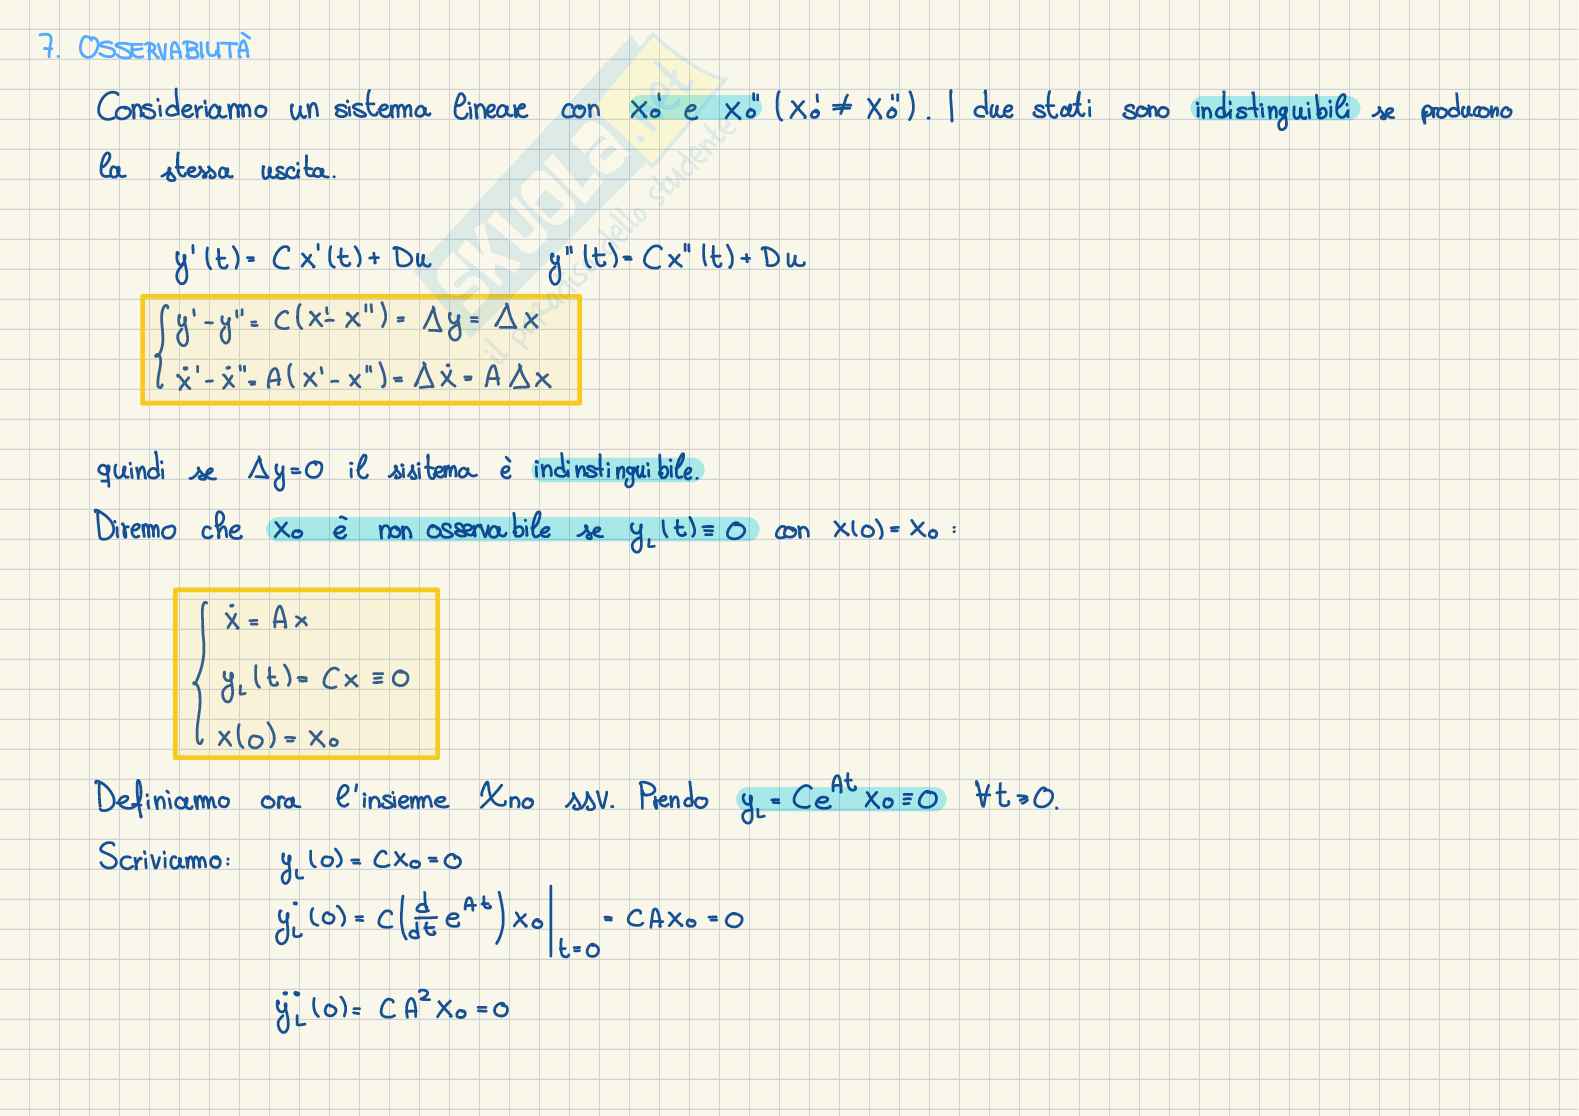 7. OSSERVABILITÀ
Consideriamo un sistema lineare con x₀' e x₀'' (x₀' ≠ x₀''). I due stati sono indistinguibili se producono
la stessa uscita.
y'(t) = Cx'(t) + Du y''(t) = Cx''(t) + Du
y' - y'' = C(x' - x'') = Δy = Δx
ẋ' - ẋ'' = A(x' - x'') = Δẋ = AΔx
quindi se Δy=0 il sisitema è indinstinguibile.
Diremo che x₀ è non osservabile se y_L(t) ≡ 0 con x(0) = x₀ :
ẋ = Ax
y_L(t) = Cx ≡ 0
x(0) = x₀
Definiamo ora l'insieme Xno ssv. Prendo y_L = Ce^{At} x₀ ≡ 0 ∀t≥0.
Scriviamo: y_L(0) = Cx₀ = 0
ẏ_L(0) = C(d/dt e^{At}) x₀ |_{t=0} = CAx₀ = 0
ÿ_L(0) = CA²x₀ = 0
SKUOLA.net
il paradiso dello studente